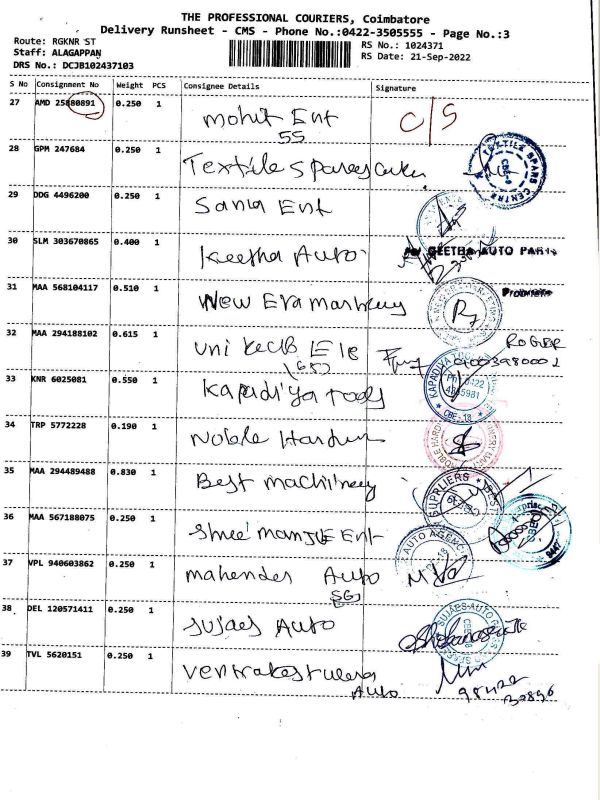 THE PROFESSIONAL COURIERS, Coimbatore
Delivery Runsheet - CMS - Phone No.:0422-3505555 - Page No.:3
Route: RGKNR ST
Staff: ALAGAPPAN
DRS No.: DCJB102437103
RS No.: 1024371
RS Date: 21-Sep-2022
S No Consignment No Weight PCS Consignee Details Signature
27 AMD 25880891 0.250 1 Mohit Ent C/S
SS
28 GPM 247684 0.250 1 Textile Spares TEXTILE SPARS CENTRE
29 DDG 4496200 0.250 1 Sania Ent
30 SLM 303670865 0.400 1 Keetha Auto GEETHA AUTO PARTS
31 MAA 568104117 0.510 1 New Era Proprietor
32 MAA 294188102 0.615 1 uni Ele ROGER
33 KNR 6025081 0.550 1 Kapadiya Tools KAPADIYA
34 TRP 5772228 0.190 1 Noble NOBLE HARD
35 MAA 294489488 0.830 1 Best machinery
36 MAA 567188075 0.250 1 Shree Manju Ent
37 VPL 940603862 0.250 1 mahender Auto AUTO AGENC
SGJ
38 DEL 120571411 0.250 1 Sujaes Auto SUJAES AUTO
39 TVL 5620151 0.250 1
Auto 98422